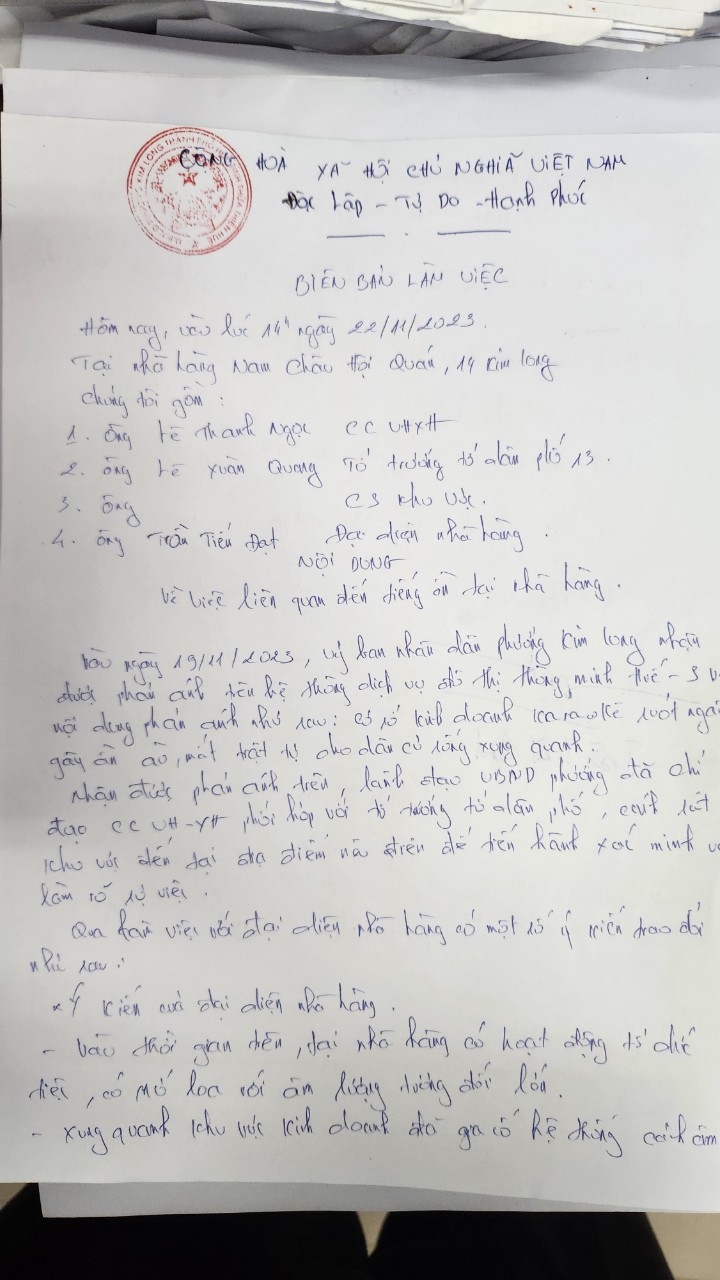 CỘNG HOÀ XÃ HỘI CHỦ NGHĨA VIỆT NAM
Độc Lập - Tự Do - Hạnh Phúc
KIM LONG THÀNH PHỐ HUẾ THỪA THIÊN HUẾ
BIÊN BẢN LÀM VIỆC
Hôm nay, vào lúc 14h ngày 22/11/2023.
Tại nhà hàng Nam Châu Hội Quán, 14 Kim Long
Chúng tôi gồm :
1. Ông Lê Thanh Ngọc CC VHXH
2. Ông Lê Xuân Quang Tổ trưởng tổ dân phố 13.
3. Ông CS Khu vực.
4. Ông Trần Tiến Đạt Đại diện nhà hàng.
NỘI DUNG
Về việc liên quan đến tiếng ồn tại nhà hàng.
Vào ngày 19/11/2023, uỷ ban nhân dân phường Kim Long nhận
được phản ánh trên hệ thống dịch vụ đô thị thông minh Huế-S
nội dung phản ánh như sau: cơ sở kinh doanh karaoke suốt
gây ồn ào, mất trật tự cho dân cư sống xung quanh.
Nhận được phản ánh trên, lãnh đạo UBND phường đã chỉ
đạo CC VH-XH phối hợp với tổ trưởng tổ dân phố, cảnh sát
khu vực đến tại địa điểm nêu trên để tiến hành xác minh
làm rõ sự việc.
Qua làm việc với đại diện nhà hàng có một số ý kiến trao đổi
như sau:
* Ý kiến của đại diện nhà hàng.
- Vào thời gian trên, tại nhà hàng có hoạt động tổ chức
tiệc, có mở loa với âm lượng tương đối lớn.
- Xung quanh khu vực kinh doanh đã gia cố hệ thống cách âm